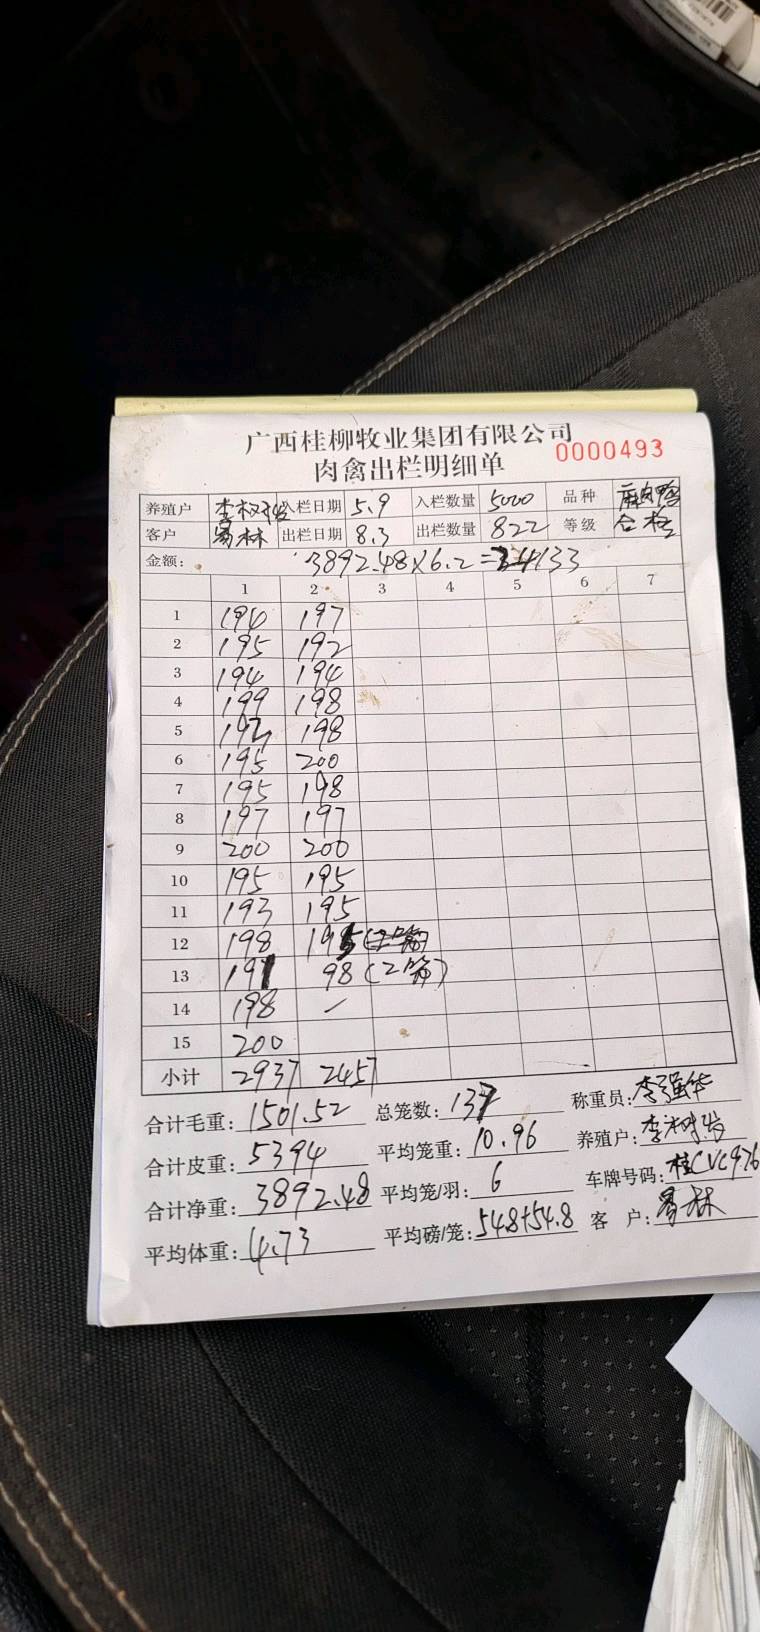 广西桂柳牧业集团有限公司
肉禽出栏明细单 0000493
养殖户 李权 入栏日期 5.9 入栏数量 5000 品种 麻肉鸭
客户 易林 出栏日期 8.3 出栏数量 822 等级 合格
金额: 3892.48×6.2= 24133
1 2 3 4 5 6 7
1 194 197
2 195 192
3 194 194
4 199 198
5 198
6 195 200
7 195 198
8 197 197
9 200 200
10 195 195
11 193 195
12 198 195
13 197 98 (2笼)
14 198 /
15 200
小计 2937 2457
合计毛重: 1501.52 总笼数: 137 称重员: 李强华
合计皮重: 5394 平均笼重: 10.96 养殖户: 李树
合计净重: 3892.48 平均笼/羽: 6 车牌号码: 桂CVC976
平均体重: 4.73 平均磅/笼: 54.8+54.8 客 户: 易林